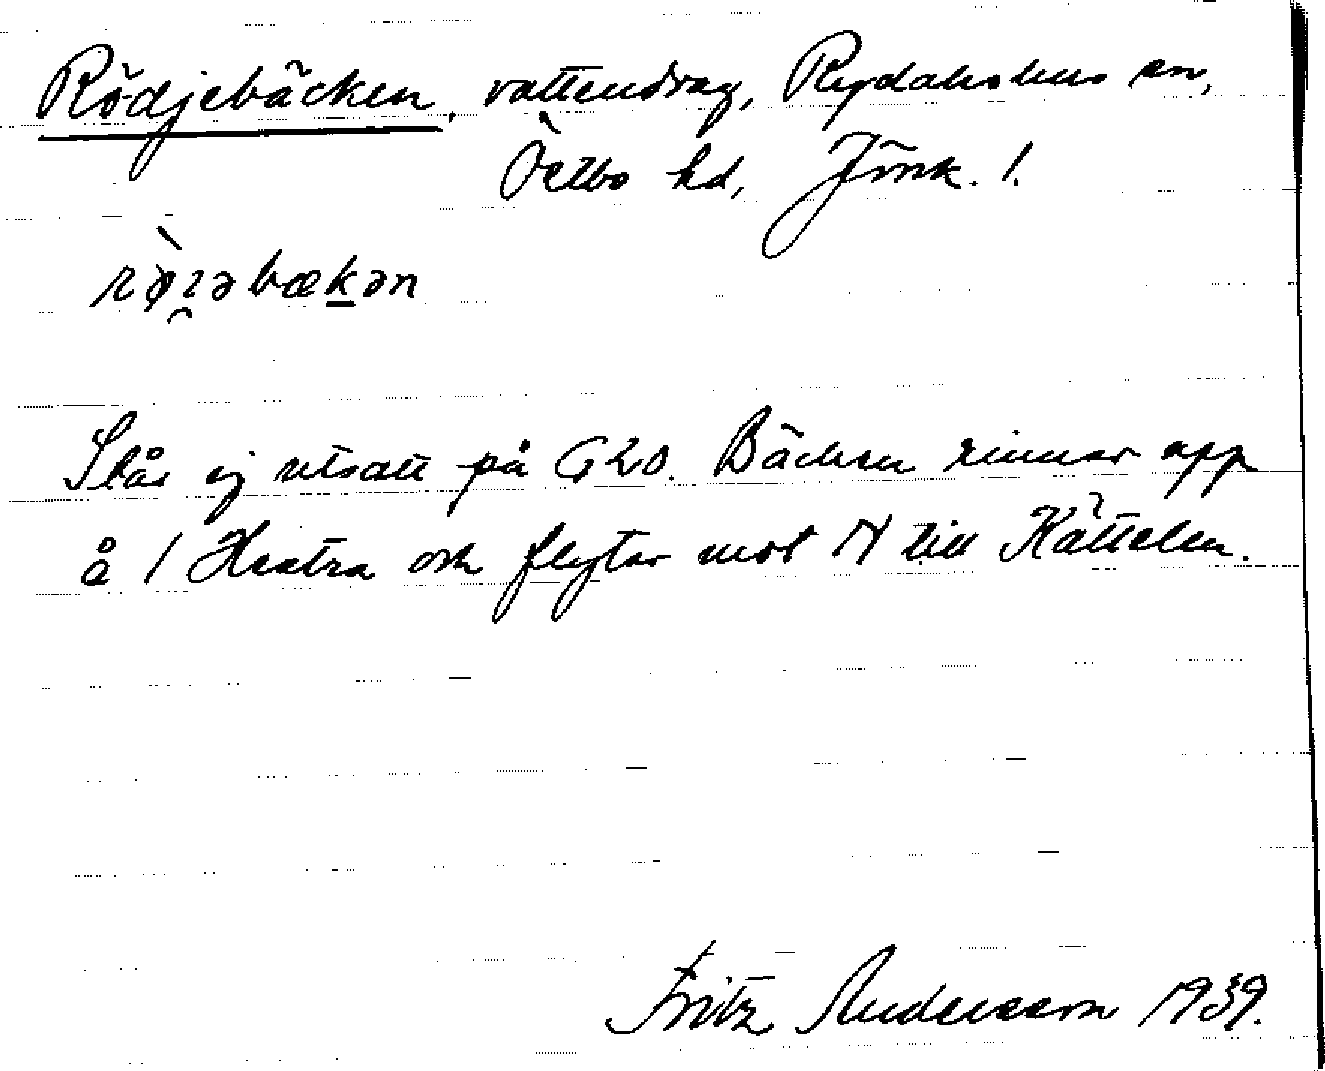 Rödjebäcken, vattendrag, Rydaholms sn,
Östbo hd, Jönk. l.
Står ej utsatt på G20. Bäcken rinner upp
å 1 Hestra och flyter mot N till Kättelen.
Fritz Andersson 1939.